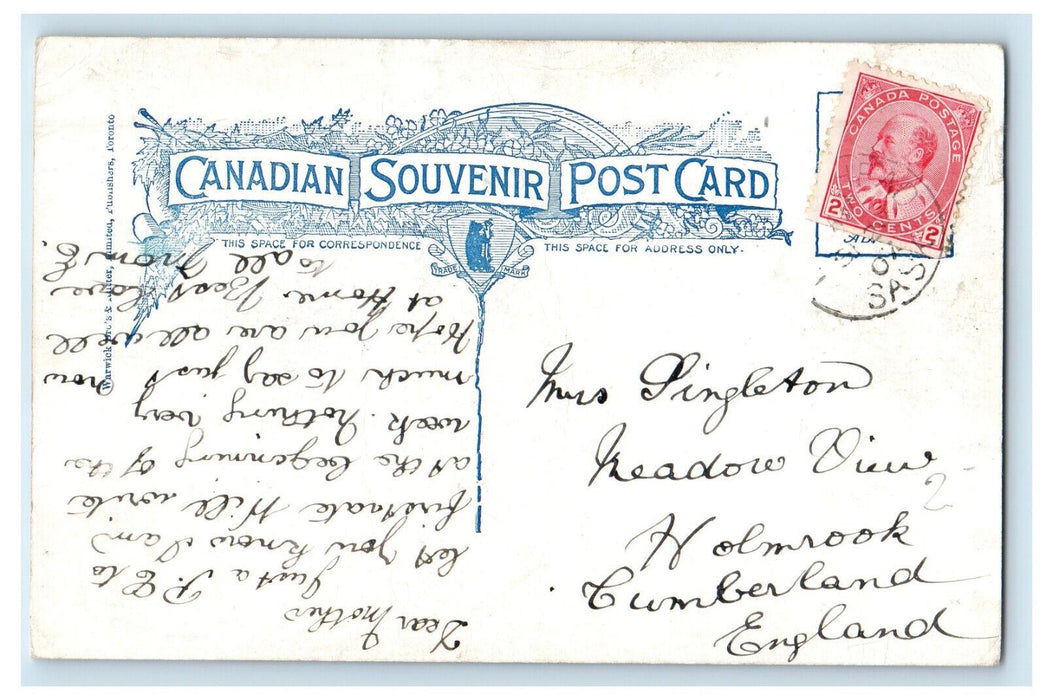 CANADIAN SOUVENIR POST CARD
THIS SPACE FOR CORRESPONDENCE
THIS SPACE FOR ADDRESS ONLY.
TRADE MARK
Warwick Bro's & Rutter, Limited, Publishers, Toronto
CANADA POSTAGE
2 TWO CENTS 2
SAS
Mrs Singleton
Meadow View
Holmrook
Cumberland
England
Dear Mother
Just a P.C. to
let you know I am
firstrate Will write
at the beginning of the
week. Nothing very
much to say just now
Hope you are all well
at Home Best love
to all from E.